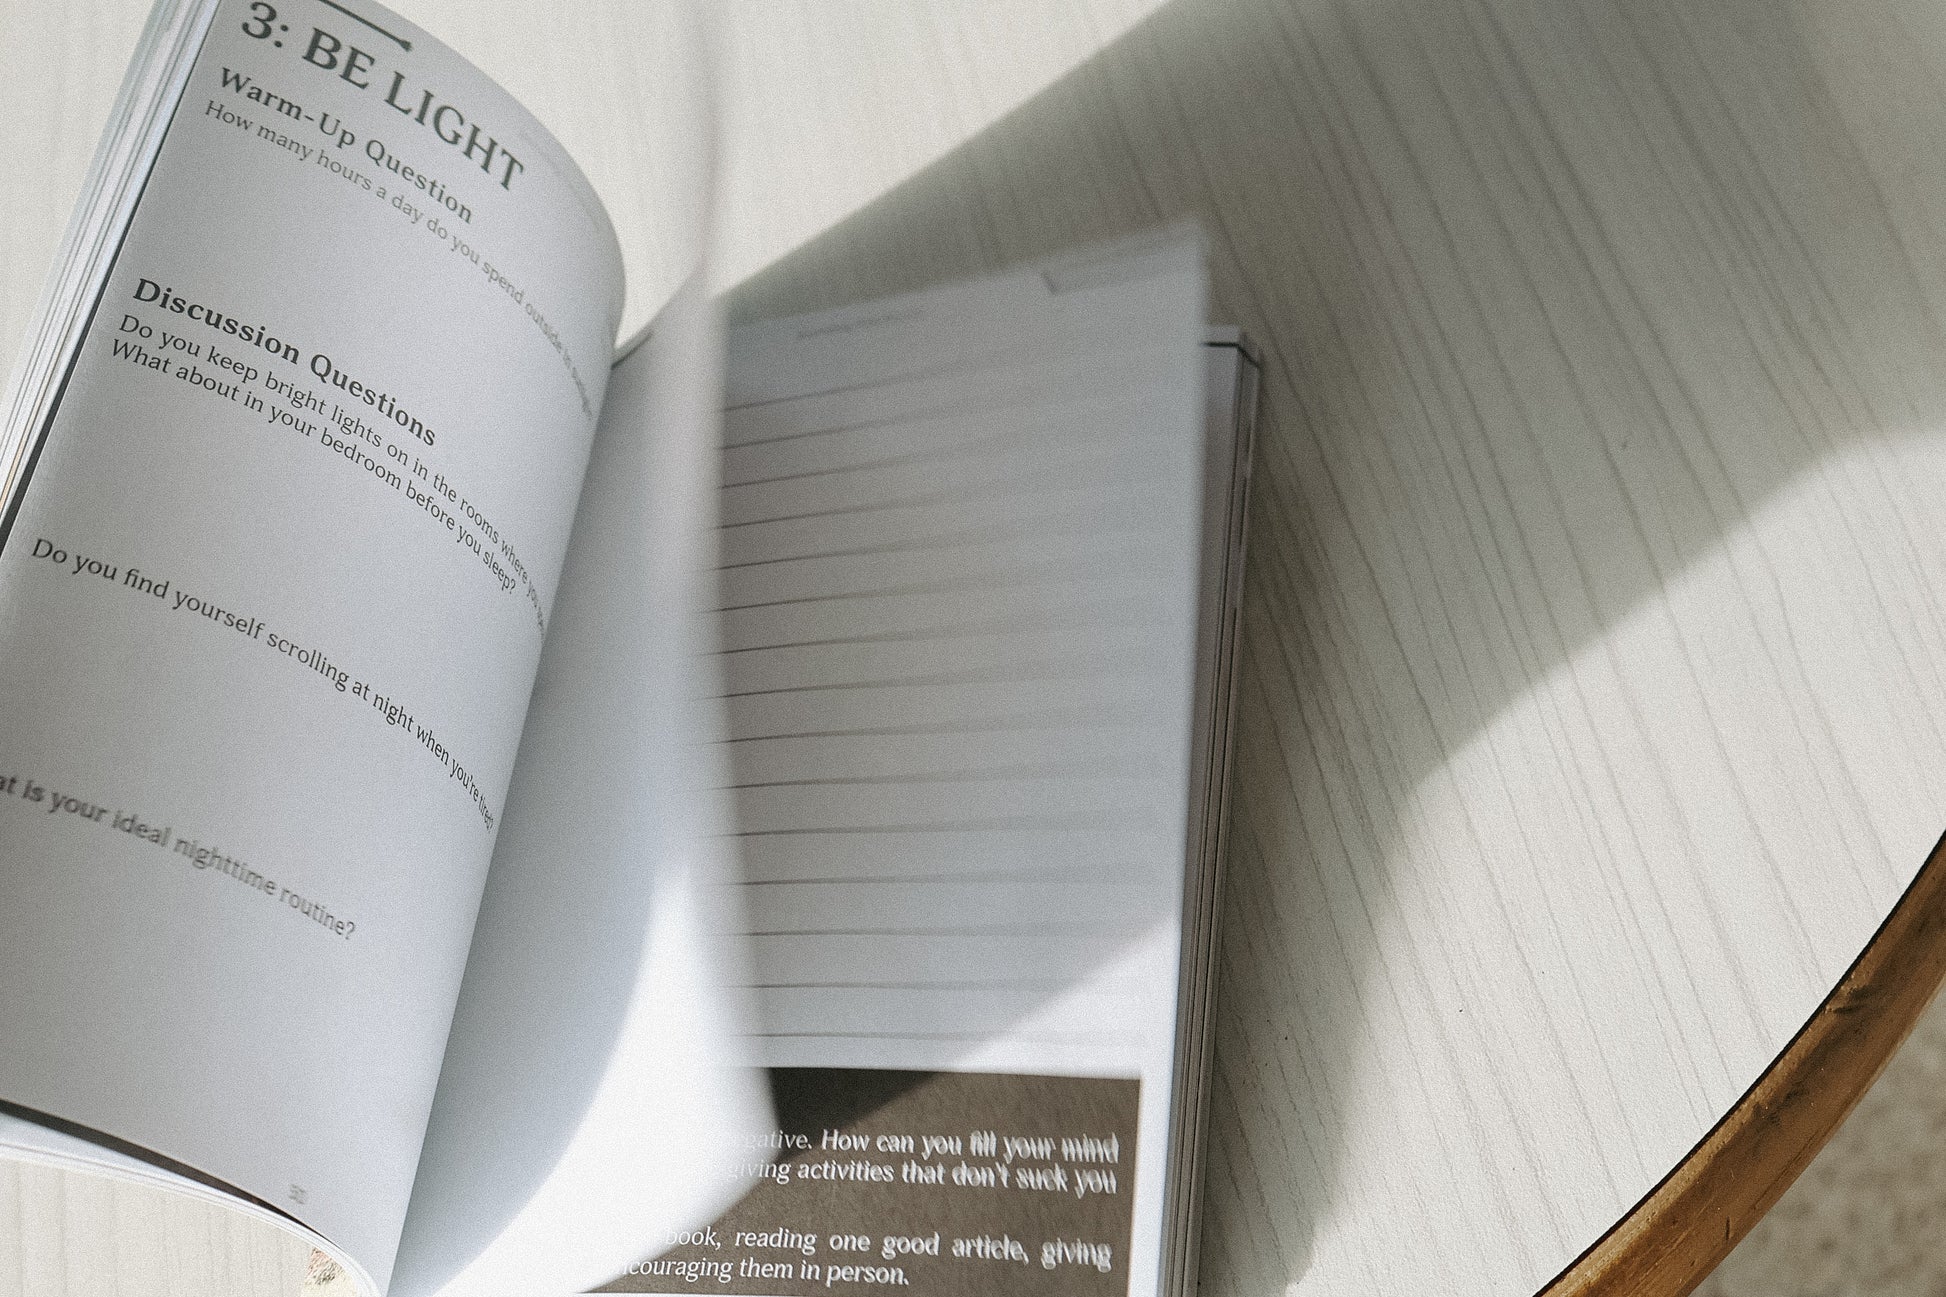 3: BE LIGHT
Warm-Up Question
How many hours a day do you spend outside in
Discussion Questions
Do you keep bright lights on in the rooms where you
What about in your bedroom before you sleep?
Do you find yourself scrolling at night when you're tired?
is your ideal nighttime routine?
How can you fill your mind
giving activities that don't suck you
book, reading one good article, giving
them in person.